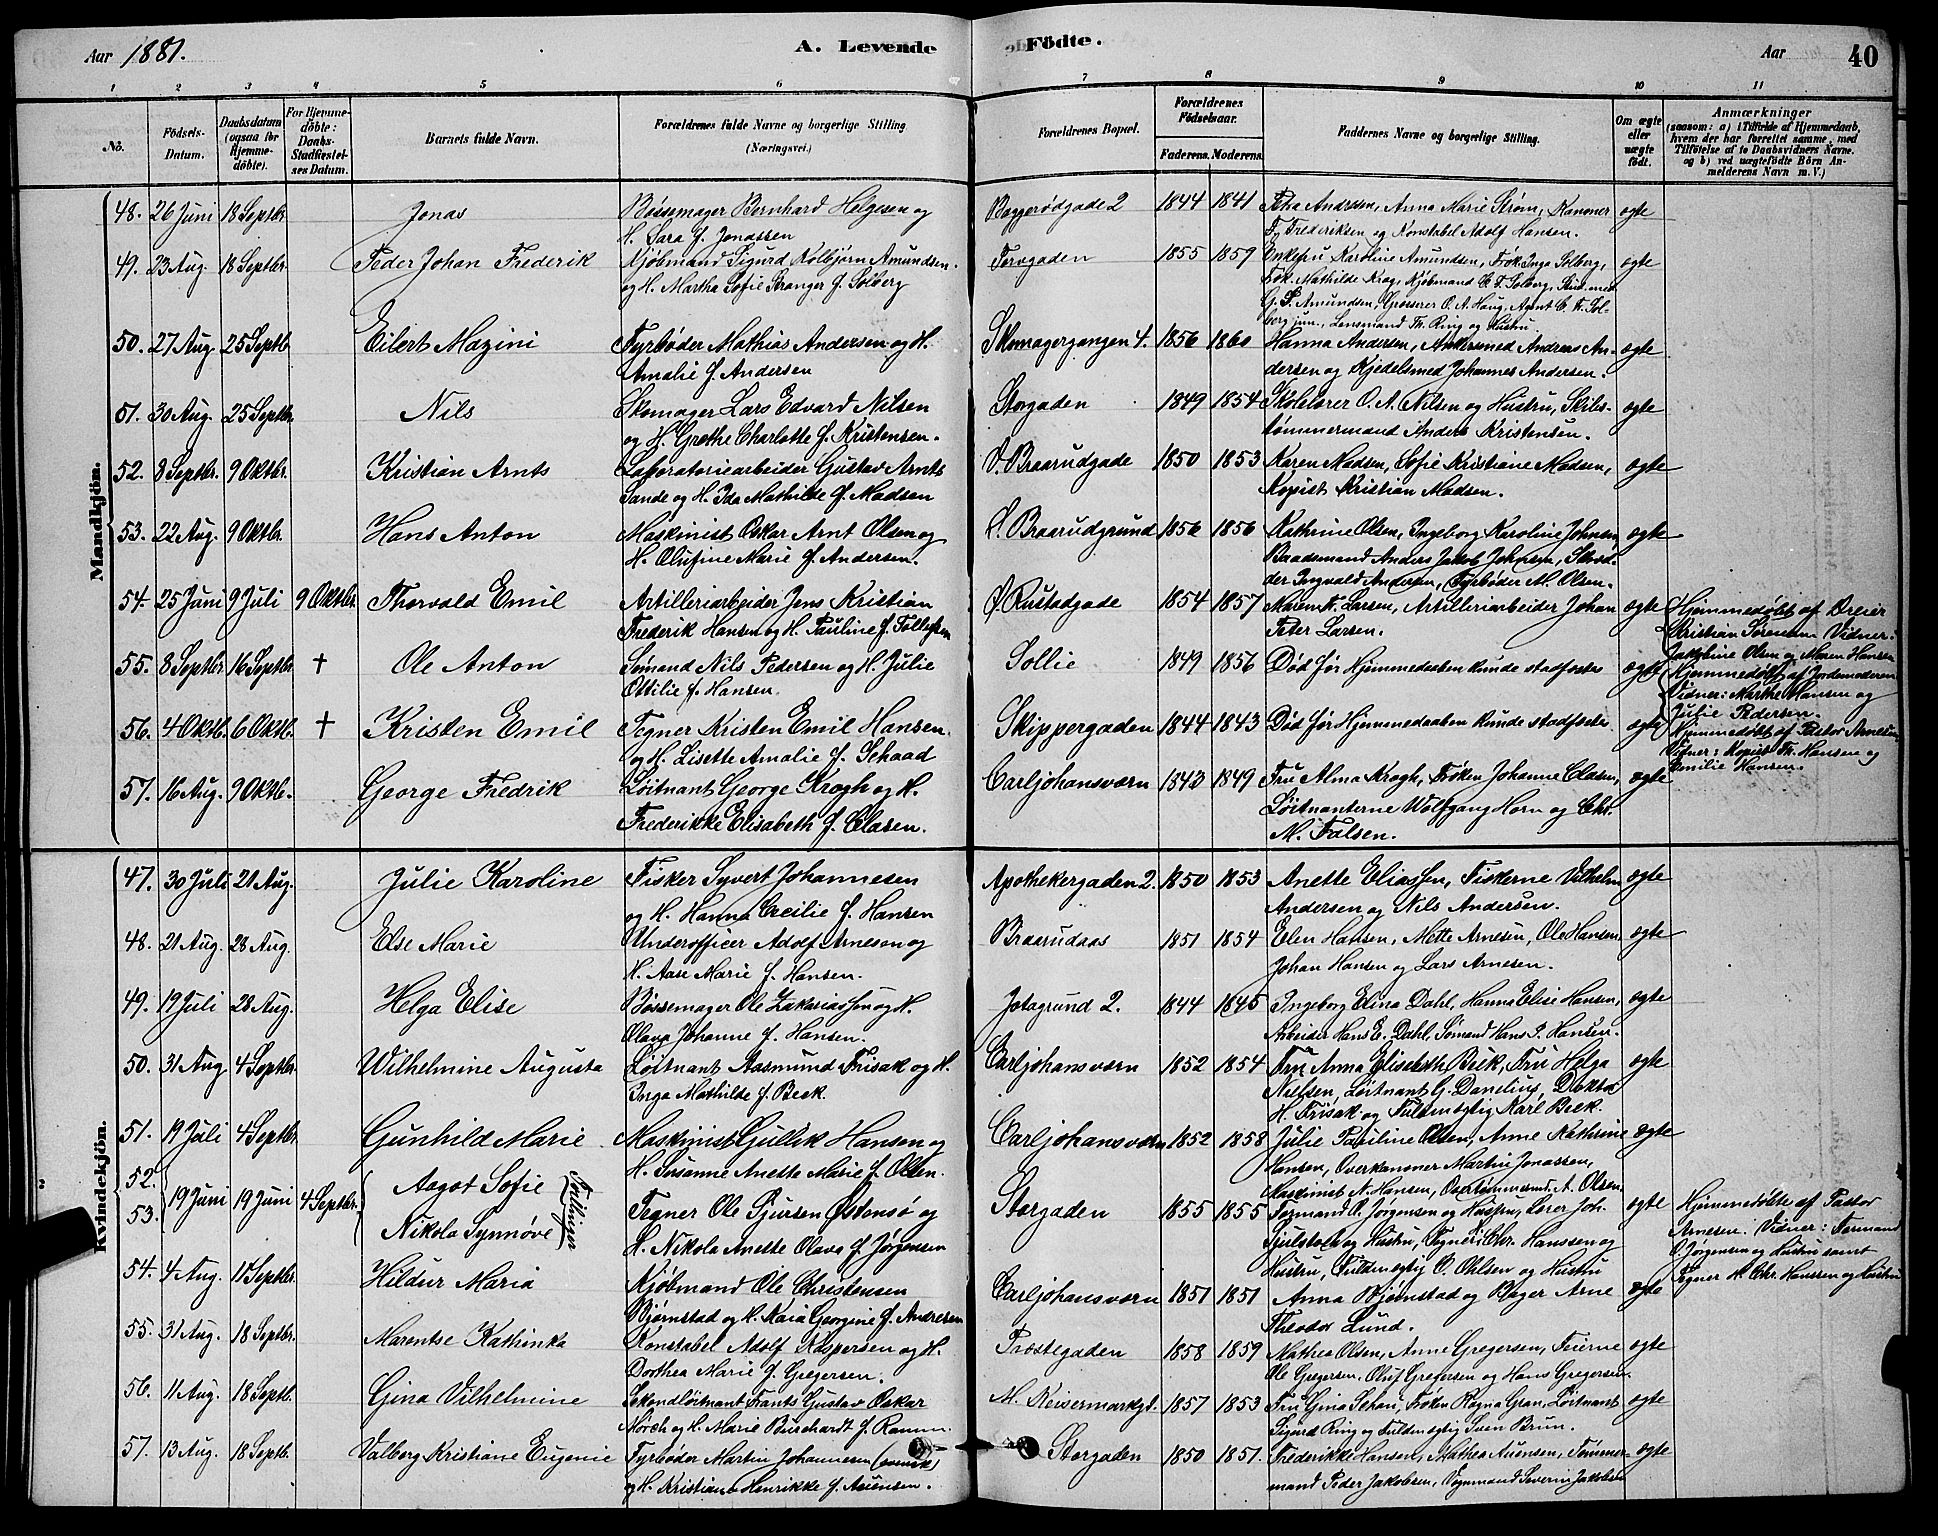 Aar 1881. A. Levende Fødte. Aar 40
1 2 3 4 5 6 7 8 9 10 11
No. Fødsels-Datum. Daabsdatum (ogsaa for Hjemme-døbte). For Hjemme-døbte: Daabs-Stadfæstel-ses Datum. Barnets fulde Navn. Forældrenes fulde Navne og borgerlige Stilling (Næringsvei.) Forældrenes Bopæl. Forældrenes Fødselsaar. Faderens. Moderens. Faddernes Navne og borgerlige Stilling. Om ægte eller uægte født. Anmærkninger (saasom: a) i Tilfælde af Hjemmedaab, hvem der har forrettet samme, med Tilføielse af to Daabsvidners Navne. og b) ved uægtefødte Børn An-melderens Navn m. V.)
Mandkjøn.
48. 26 Juni 18 Septbr. Jonas Bøssemager Bernhard Helgesen og Baggerødgade 2 1844 1841 Andersen, Anna Marie Strøm, Kanoner ægte
H. Sara f. Jonassen F. Frederiksen og Konstabel Adolf Hansen.
49. 23 Aug. 18 Septbr. Peder Johan Frederik Kjøbmand Sigurd Kolbjørn Amundsen Torvgaden 1855 1859 Enkefru Karoline Amundsen, Frøk. Inga Solberg, ægte
og H. Martha Sofie Stranger f. Solberg Frøk. Mathilde Krag, Kjøbmand C. F. Solberg, Stud. med.
G. P. Amundsen, Grosserer O. A. Haug, Agent C. F. Sol-
berg jun., Lensmand Th. Ring og Hustru
50. 27 Aug. 25 Septb. Eilert Mazini Fyrbøder Mathias Andersen og H. Skomagergangen 4. 1856 1860 Hanna Andersen, Ankersmed Andreas An- ægte
Amalie f. Andersen dersen og Kjedelsmed Johannes Andersen.
51. 30 Aug. 25 Septbr. Nils Skomager Lars Edvard Nilsen Storgaden 1849 1854 Skolelærer O. A. Nilsen og Hustru, Skibs- ægte
og H. Grethe Charlotte f. Kristensen. tømmermand Anders Kristensen.
52. 8 Septbr. 9 Oktbr. Kristian Arnts Laboratoriearbeider Gustav Arnts Ø. Braarudgade 1850 1853 Karen Madsen, Sofie Kristiane Madsen, ægte
Sande og H. Ida Mathilde f. Madsen Kopist Kristian Madsen.
53. 22 Aug. 9 Oktbr. Hans Anton Maskinist Oskar Arnt Olsen og Ø. Braarudgrund 1856 1856 Kathrine Olsen, Ingeborg Karoline Johnsen ægte
H. Olufine Marie f. Andersen. Baadsmand Anders Jakob Johnsen,
Ingvald Andersen, Fyrbøder M. Olsen.
54. 25 Juni 9 Juli 9 Oktbr. Thorvald Emil Artilleriarbeider Jens Kristian Ø. Rustadgade 1854 1857 Maren K. Larsen, Artilleriarbeider Johan ægte Hjemmedøbt af Dreier
Frederik Hansen og H. Pauline f. Tollefsen Peter Larsen. Kristian Sørensen Vidner:
Jakobine Olsen og Maren Hansen
55. 8 Septbr. 16 Septbr. † Ole Anton Sømand Nils Pedersen og H. Julie Sollie 1849 1856 Død før Hjemmedaaben kunde stadfæstes ægte Hjemmedøbt af Jordemoderen
Ottilie f. Hansen. Vidner: Marthe Hansen og
Julie Pedersen.
56. 4 Oktb. 6 Oktb. † Kristen Emil Tegner Kristen Emil Hansen Skippergaden 1844 1843 Død før Hjemmedaaben kunde stadfæstes ægte Hjemmedøbt af Pastor Arnesen
og H. Lisette Amalie f. Schaad Vidner: Kopist Fr. Hansen og
Emilie Hansen.
57. 16 Aug. 9 Oktb. George Fredrik Løitnant George Kragh og H. Carljohansværn 1843 1849 Fru Alma Kragh, Frøken Johanne Clasen, ægte
Frederikke Elisabeth f. Clasen. Løitnanterne Wolfgang Horn og Chr.
M. Falsen.
Kvindekjøn.
47. 30 Juli 21 Aug. Julie Karoline Fisker Syvert Johannesen Apothekergaden 2. 1850 1853 Anette Eliassen, Fiskerne Vilhelm ægte
og H. Hanna Cecilie f. Hansen Andersen og Nils Andersen.
48. 21 Aug. 28 Aug. Else Marie Underofficer Adolf Arnesen og Braarudaas 1851 1854 Elen Hansen, Mette Arnesen, Ole Hansen, ægte
H. Aase Marie f. Hansen. Johan Hansen og Lars Arnesen.
49. 19 Juli 28 Aug. Helga Elise Bøssemager Ole Zakariassen og H. Jotagrund 2. 1844 1845 Ingeborg Elina Dahl, Hanna Elise Hansen, ægte
Olava Johanne f. Hansen. Arbeider Hans E. Dahl, Sømand Hans P. Hansen.
50. 31 Aug 4 Septbr. Wilhelmine Augusta Løitnant Aasmund Frisak og H. Carljohansværn 1852 1854 Fru Anna Elisabeth Beck, Fru Helga ægte
Inga Mathilde f. Beck. Nielsen, Løitnant G. Danelius, Doktor
H. Frisak og Fuldmægtig Karl Beck.
51. 19 Juli 4 Septbr. Gunhild Marie Maskinist Gullik Hansen og Carljohansværn 1852 1858 Julie Pauline Olsen, Anne Kathrine ægte
H. Susanne Anette Marie f. Olsen. Hansen, Overkanoner Martin Jonassen,
Maskinist N. Hansen, Overtømmermd. A. Olsen.
52. 53. 19 Juni 19 Juni 4 Septbr. Aagot Sofie Nikola Synnøve Tvillinger Tegner Ole Sjursen Østensø og Storgaden 1855 1855 Formand P. Jørgensen og Hustru, Lærer Joh. ægte Hjemmedøbte af Pastor
H. Nikola Anette Olava f. Jørgensen Fjulstolen og Hustru, Tegner M. Chr. Hanssen og Arnesen. Vidner: Formand
Hustru, Fuldmægtig O. Ohlsen og Hustru P. Jørgensen og Hustru samt
Tegner M. Chr. Hanssen og Hustru
54. 4 Aug. 11 Septbr. Hildur Maria Kjøbmand Ole Christensen Carljohansværn 1851 1851 Anna Bjørnstad og Bager Arne ægte
Bjørnstad og H. Kaia Georgine f. Andresen Theodor Lund.
55. 31 Aug. 18 Septbr. Marentse Kathinka Konstabel Adolf Kaspersen og H. Prestegaden 1858 1859 Mathea Olsen, Anne Gregersen, Feierne ægte
Dorthea Marie f. Gregersen. Ole Gregersen, Oluf Gregersen og Hans Gregersen.
56. 11 Aug. 18 Septb. Gina Vilhelmine Sekondløitnant Frants Gustav Oskar M. Keisermarkgd. 1857 1853 Fru Gina Schau, Frøken Ragna Gran, Løitnant ægte
Mørch og H. Marie Burchardt f. Ramm. Sigurd Ring og Fuldmægtig Sven Brun.
57. 13 Aug. 18 Septb. Valborg Kristiane Eugenie Fyrbøder Martin Johannesen (svensk) Storgaden 1850 1851. Frederikke Hansen, Mathea Auensen, Tømmer- ægte
og H. Kristiane Henrikke f. Auensen. mand Peder Jakobsen, Vognmand Severin Jakobsen